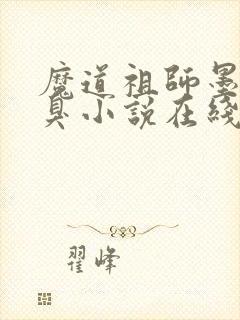 魔道祖師墨
臭小說在綫
翟峰